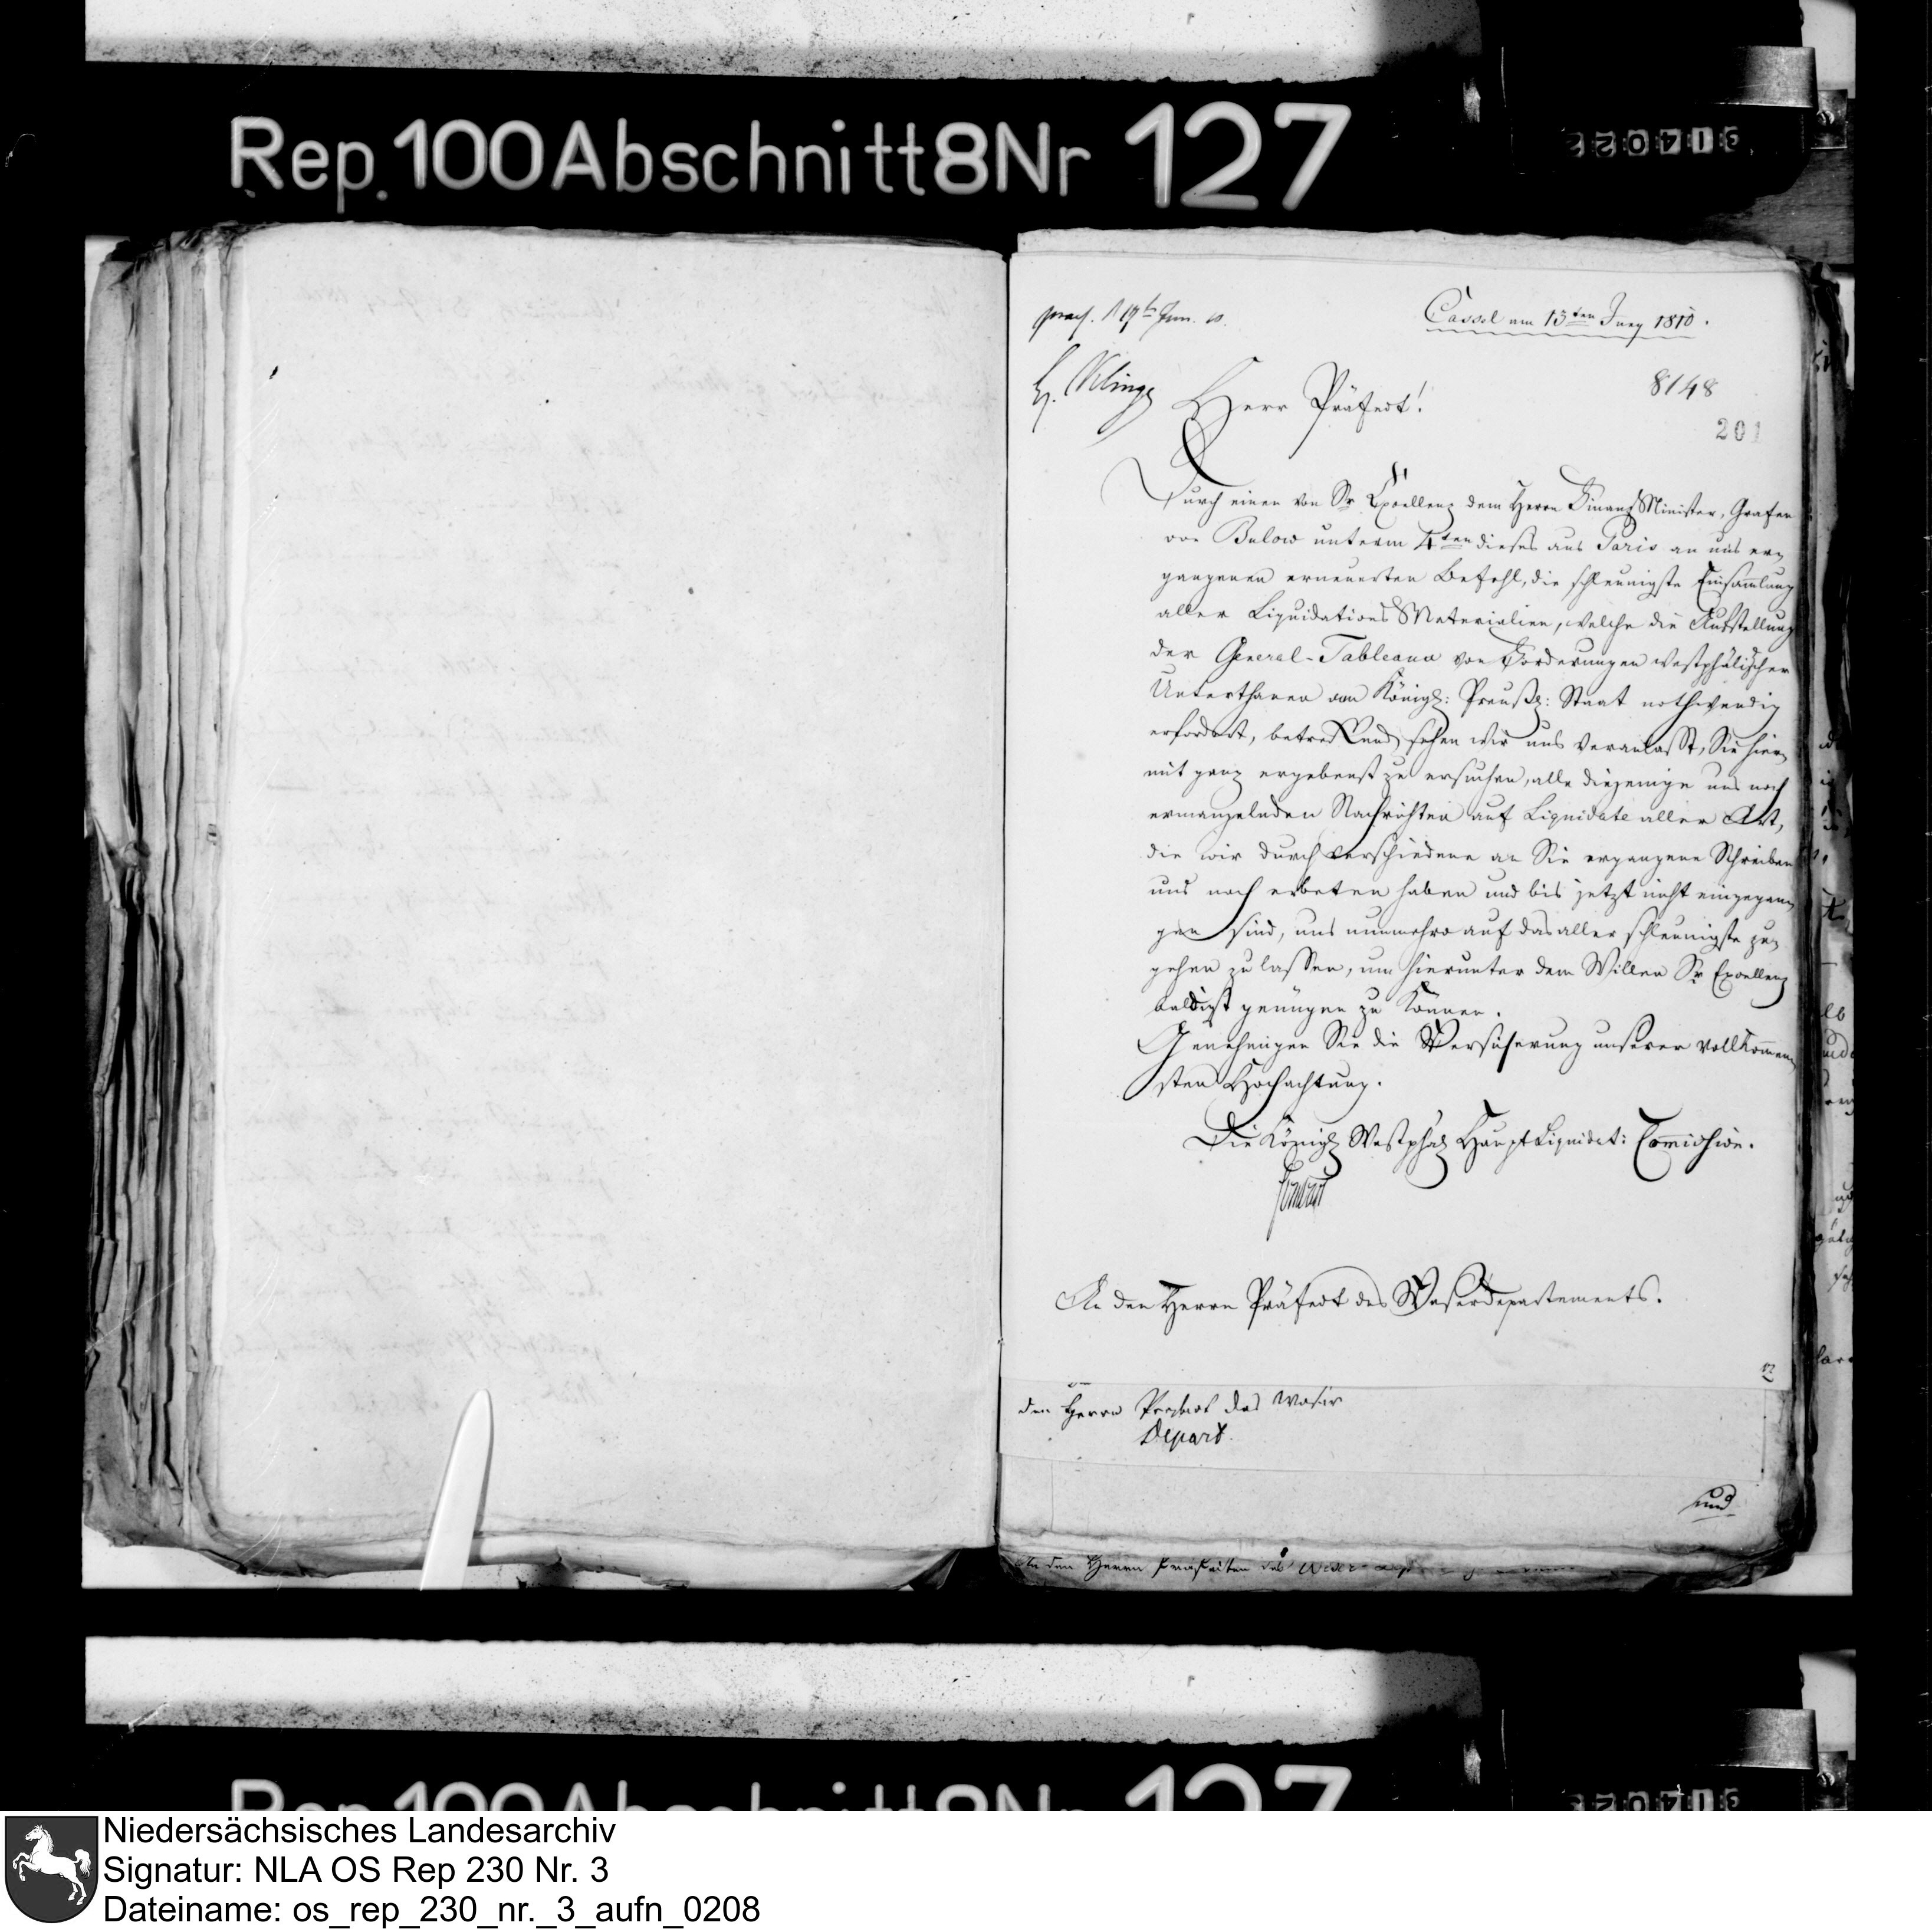 Rep. 100 Abschnitt 8 Nr 127
præs. d 19ten Jun. 10.
Cassel am 15ten Juny 1810.
H. Klinge
8148
Herr Präfect!
201
Durch einen von Sr Excellenz dem Herrn Finanz Minister, Grafen
von Bulow unterm 4ten dieses aus Paris an uns er¬
gangenen erneuerten Befehl, die schleunigste Einsam̄lung
aller Liquidations Materialien, welche die Aufstellung
der General-Tableaux von Forderungen westphälischer
Unterthanen am Königl: Preußl: Staat nothwendig
erfordert, betreffend, sehen wir uns veranlaßt, Sie hier¬
mit ganz ergebenst zu ersuchen, alle diejenige uns noch
ermangelnden Nachrichten auf Liquidate aller Art,
die wir durch verschiedene an Sie ergangene Schreiben
uns noch erbeten haben und bis jetzt nicht eingegan¬
gen sind, uns nunmehro auf das aller schleunigste zu¬
gehen zu lassen, um hierunter dem Willen Sr Excellenz
baldigst genügen zu können.
Genehmigen Sie die Versicherung unserer vollkom̄en¬
sten Hochachtung.
Die Königl Westphäl Haupt Liquidat: Com̄ission.
An den Herrn Präfect des Weserdepartements.
den Herrn Prefect des Weser
Depart.
und
An den Herrn Praefecten des Weser
Niedersächsisches Landesarchiv
Signatur: NLA OS Rep 230 Nr. 3
Dateiname: os_rep_230_nr._3_aufn_0208